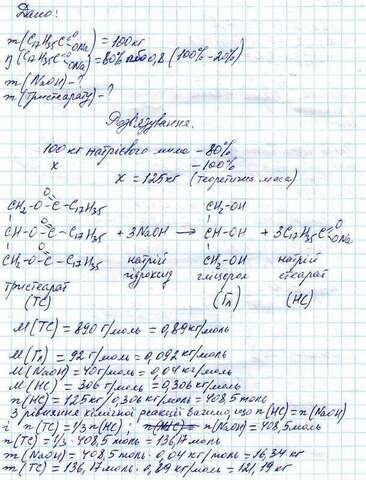 Дано:
m(C₁₇H₃₅C=O ONa) = 100 кг
η(C₁₇H₃₅C=O ONa) = 80% або 0,8 (100% - 20%)
m(NaOH) - ?
m(Тристеарату) - ?
Розв'язування.
100 кг натрієвого мила - 80%
x - 100%
x = 125 кг (теоретична маса)
CH₂-O-C(=O)-C₁₇H₃₅ CH₂-OH
CH-O-C(=O)-C₁₇H₃₅ + 3NaOH → CH-OH + 3C₁₇H₃₅C=O ONa
CH₂-O-C(=O)-C₁₇H₃₅ натрій CH₂-OH натрій
тристеарат гідроксид гліцерол стеарат
(ТС) (Гл) (НС)
M(ТС) = 890 г/моль = 0,89 кг/моль
M(Гл) = 92 г/моль = 0,092 кг/моль
M(NaOH) = 40 г/моль = 0,04 кг/моль
M(НС) = 306 г/моль = 0,306 кг/моль
n(НС) = 125 кг/0,306 кг/моль = 408,5 моль
З рівняння хімічної реакції бачимо, що n(НС) = n(NaOH)
і n(ТС) = 1/3 n(НС); n(NaOH) = 408,5 моль
n(ТС) = 1/3 · 408,5 моль = 136,17 моль
m(NaOH) = 408,5 моль · 0,04 кг/моль = 16,34 кг
m(ТС) = 136,17 моль · 0,89 кг/моль = 121,19 кг